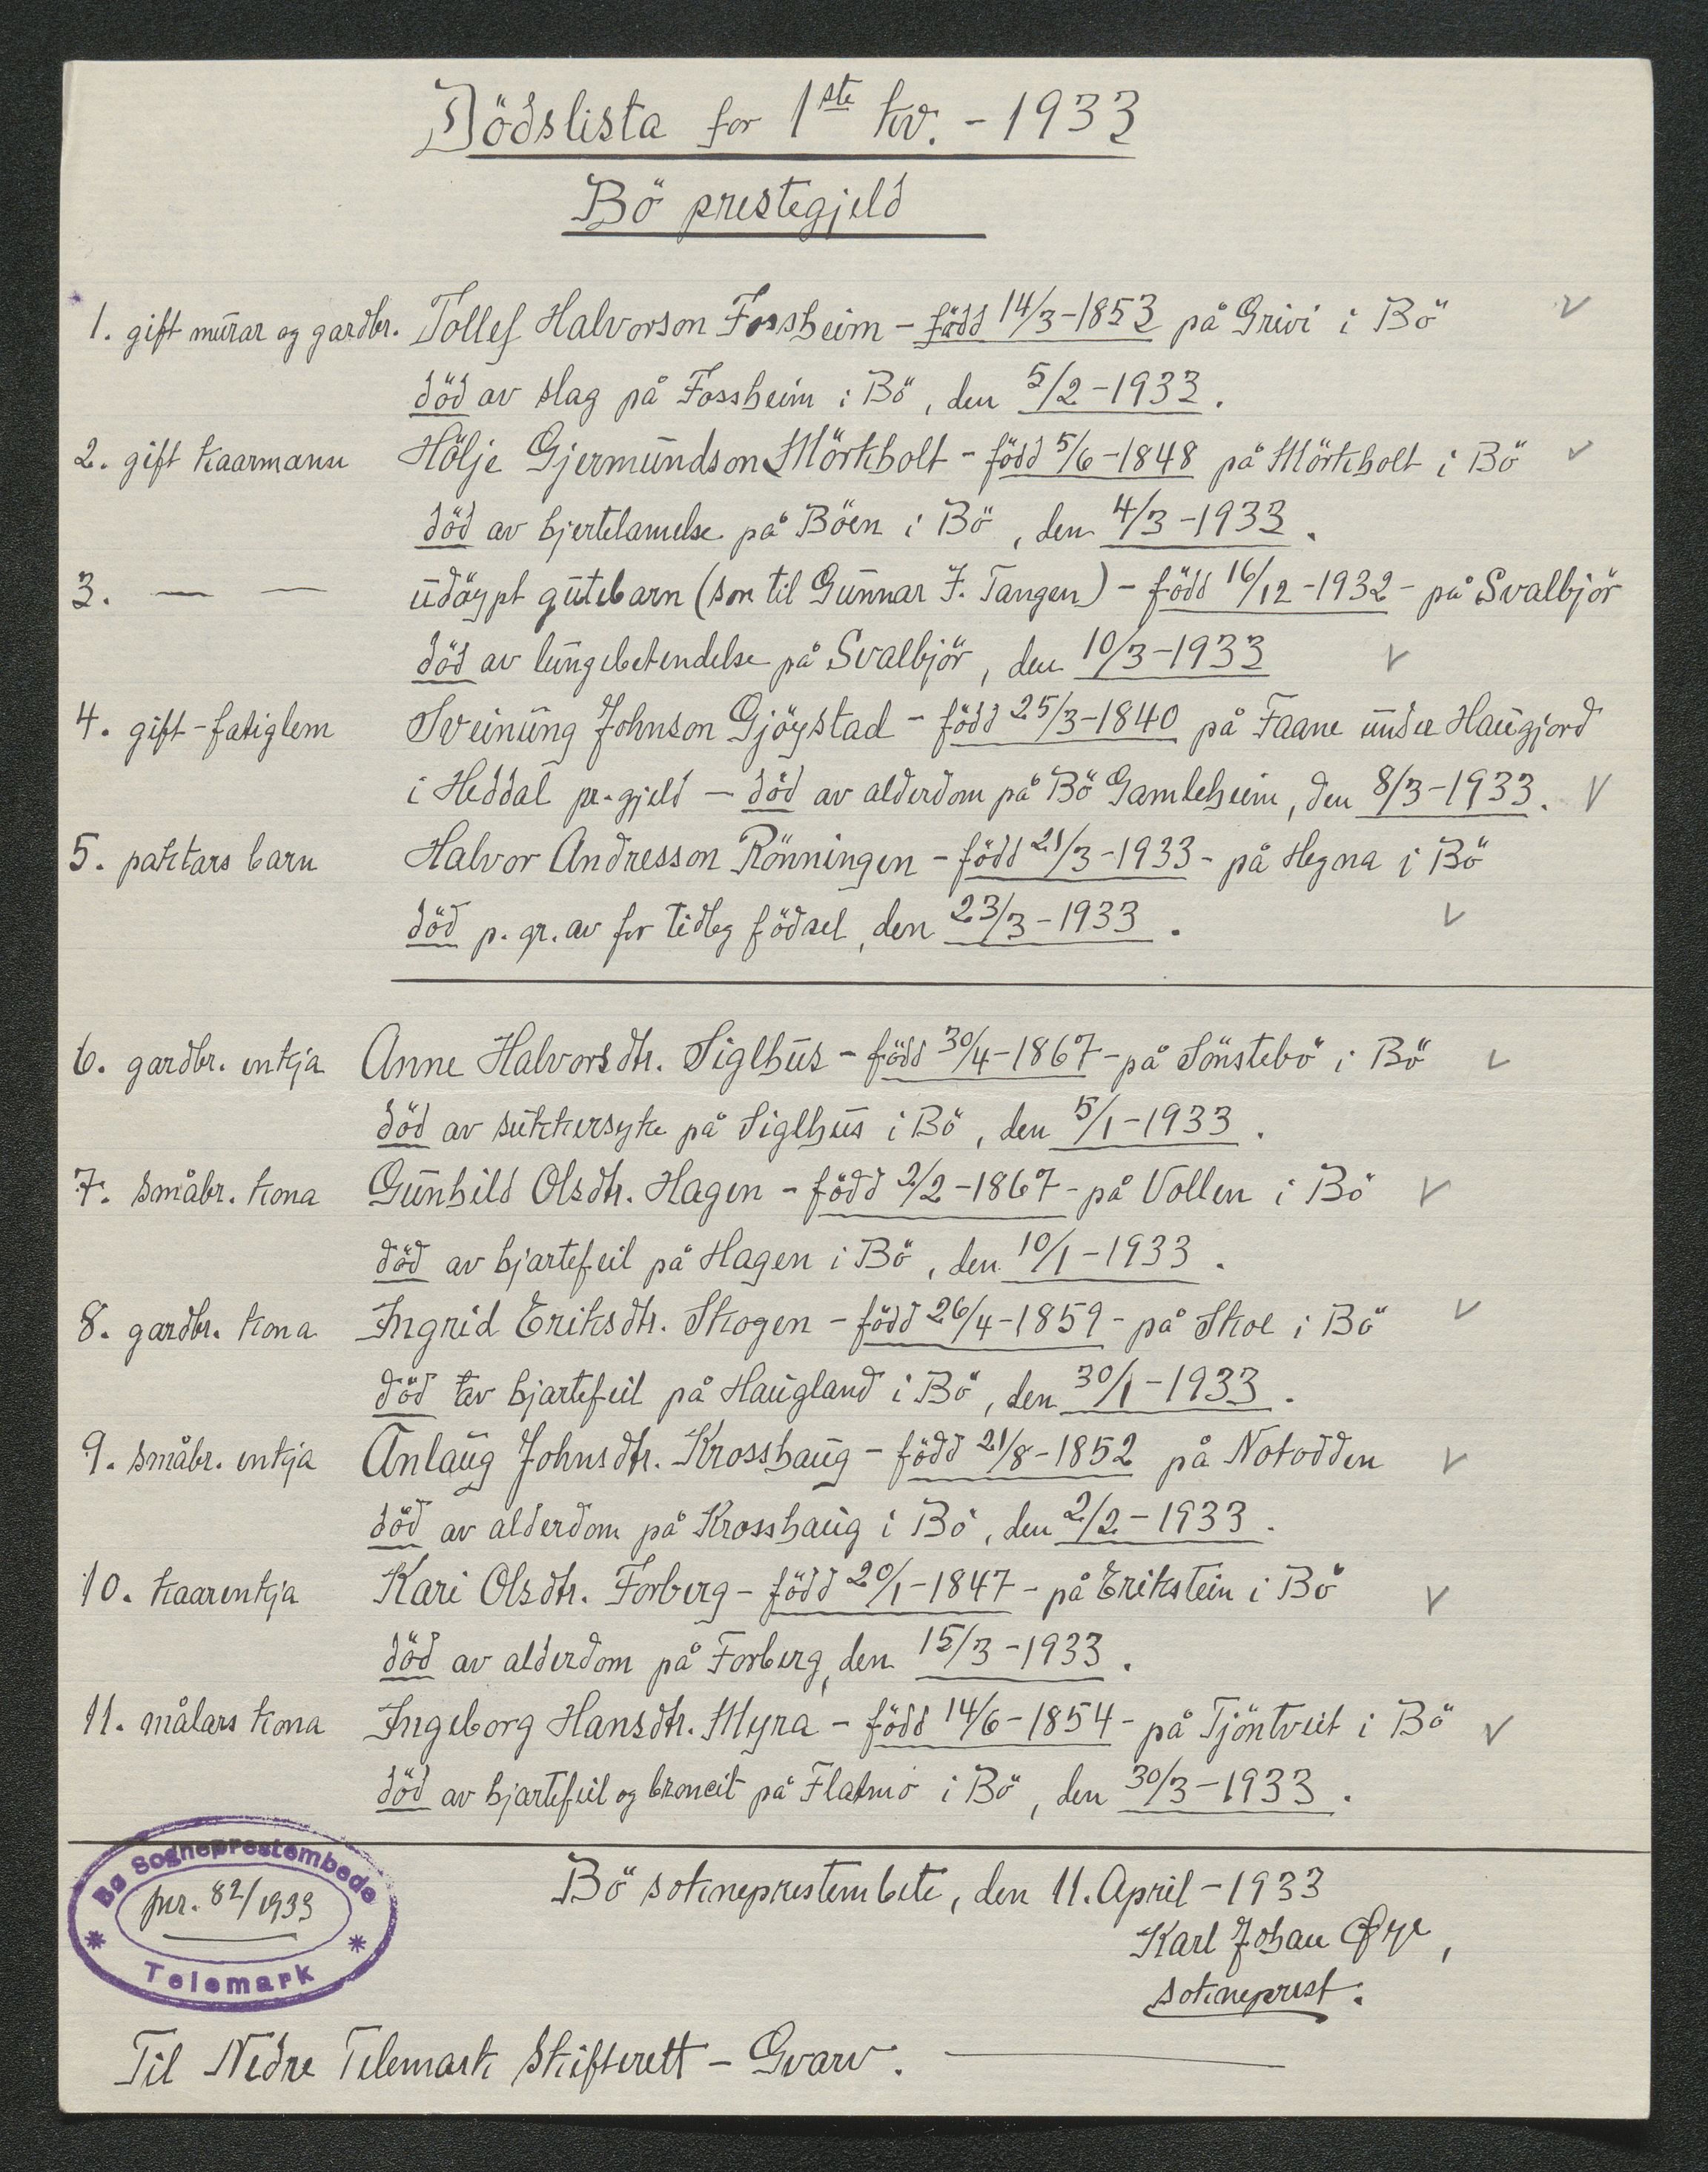 Dödslista for 1ste kv. - 1933
Bö prestegjeld
1. gift murar og gardbr. Tollef Halvorson Fossheim - född 14/3-1853 på Grivi i Bö
död av slag på Fossheim i Bö, den 5/2-1933.
2. gift kaarmann Hölje Gjermundson Mörkholt - född 5/6-1848 på Mörkholt i Bö
död av hjertelamelse på Böen i Bö, den 4/3-1933.
3. — — udöypt gutebarn (son til Gunnar J. Tangen) - född 16/12-1932 - på Svalbjör
död av lungebetendelse på Svalbjör, den 10/3-1933
4. gift-fatiglem Sveinung Johnson Gjöystad - född 25/3-1840 på Faane under Haugjord
i Heddal pr.gjeld - död av alderdom på Bö Gamleheim, den 8/3-1933.
5. paktars barn Halvor Andresson Rönningen - född 21/3-1933 - på Hegna i Bö
död p. gr. av for tidleg födsel, den 23/3-1933.
6. gardbr. enkja Anne Halvorsdtr. Siglhus - född 30/4-1867 - på Sönstebö i Bö
död av sukkersyke på Siglhus i Bö, den 5/1-1933.
7. småbr. kona Gunhild Olsdtr. Hagen - född 2/2-1867 - på Vollen i Bö
död av hjartefeil på Hagen i Bö, den 10/1-1933.
8. gardbr. kona Ingrid Eriksdtr. Skogen - född 26/4-1859 - på Skoe i Bö
död av hjartefeil på Haugland i Bö, den 30/1-1933.
9. småbr. enkja Anlaug Johnsdtr. Krosshaug - född 21/8-1852 på Notodden
död av alderdom på Krosshaug i Bö, den 2/2-1933.
10. kaarenkja Kari Olsdtr. Forberg - född 20/1-1847 - på Erikstein i Bö
död av alderdom på Forberg, den 15/3-1933.
11. målars kona Ingeborg Hansdtr. Myra - född 14/6-1854 - på Tjöntveit i Bö
död av hjartefeil og broncit på Flatmo i Bö, den 30/3-1933.
Bø Sogneprestembede
jnr. 82/1933
Telemark
Bö sokneprestembete, den 11. April - 1933
Karl Johan Øye,
sokneprest.
Til Nedre Telemark Skifterett - Gvarv.